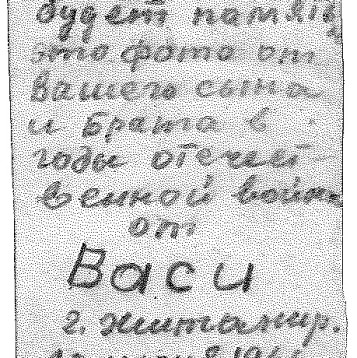 будет памяти
это фото от
вашего сына
и брата в
годы отечест
венной войны
от
Васи
г. житомир.